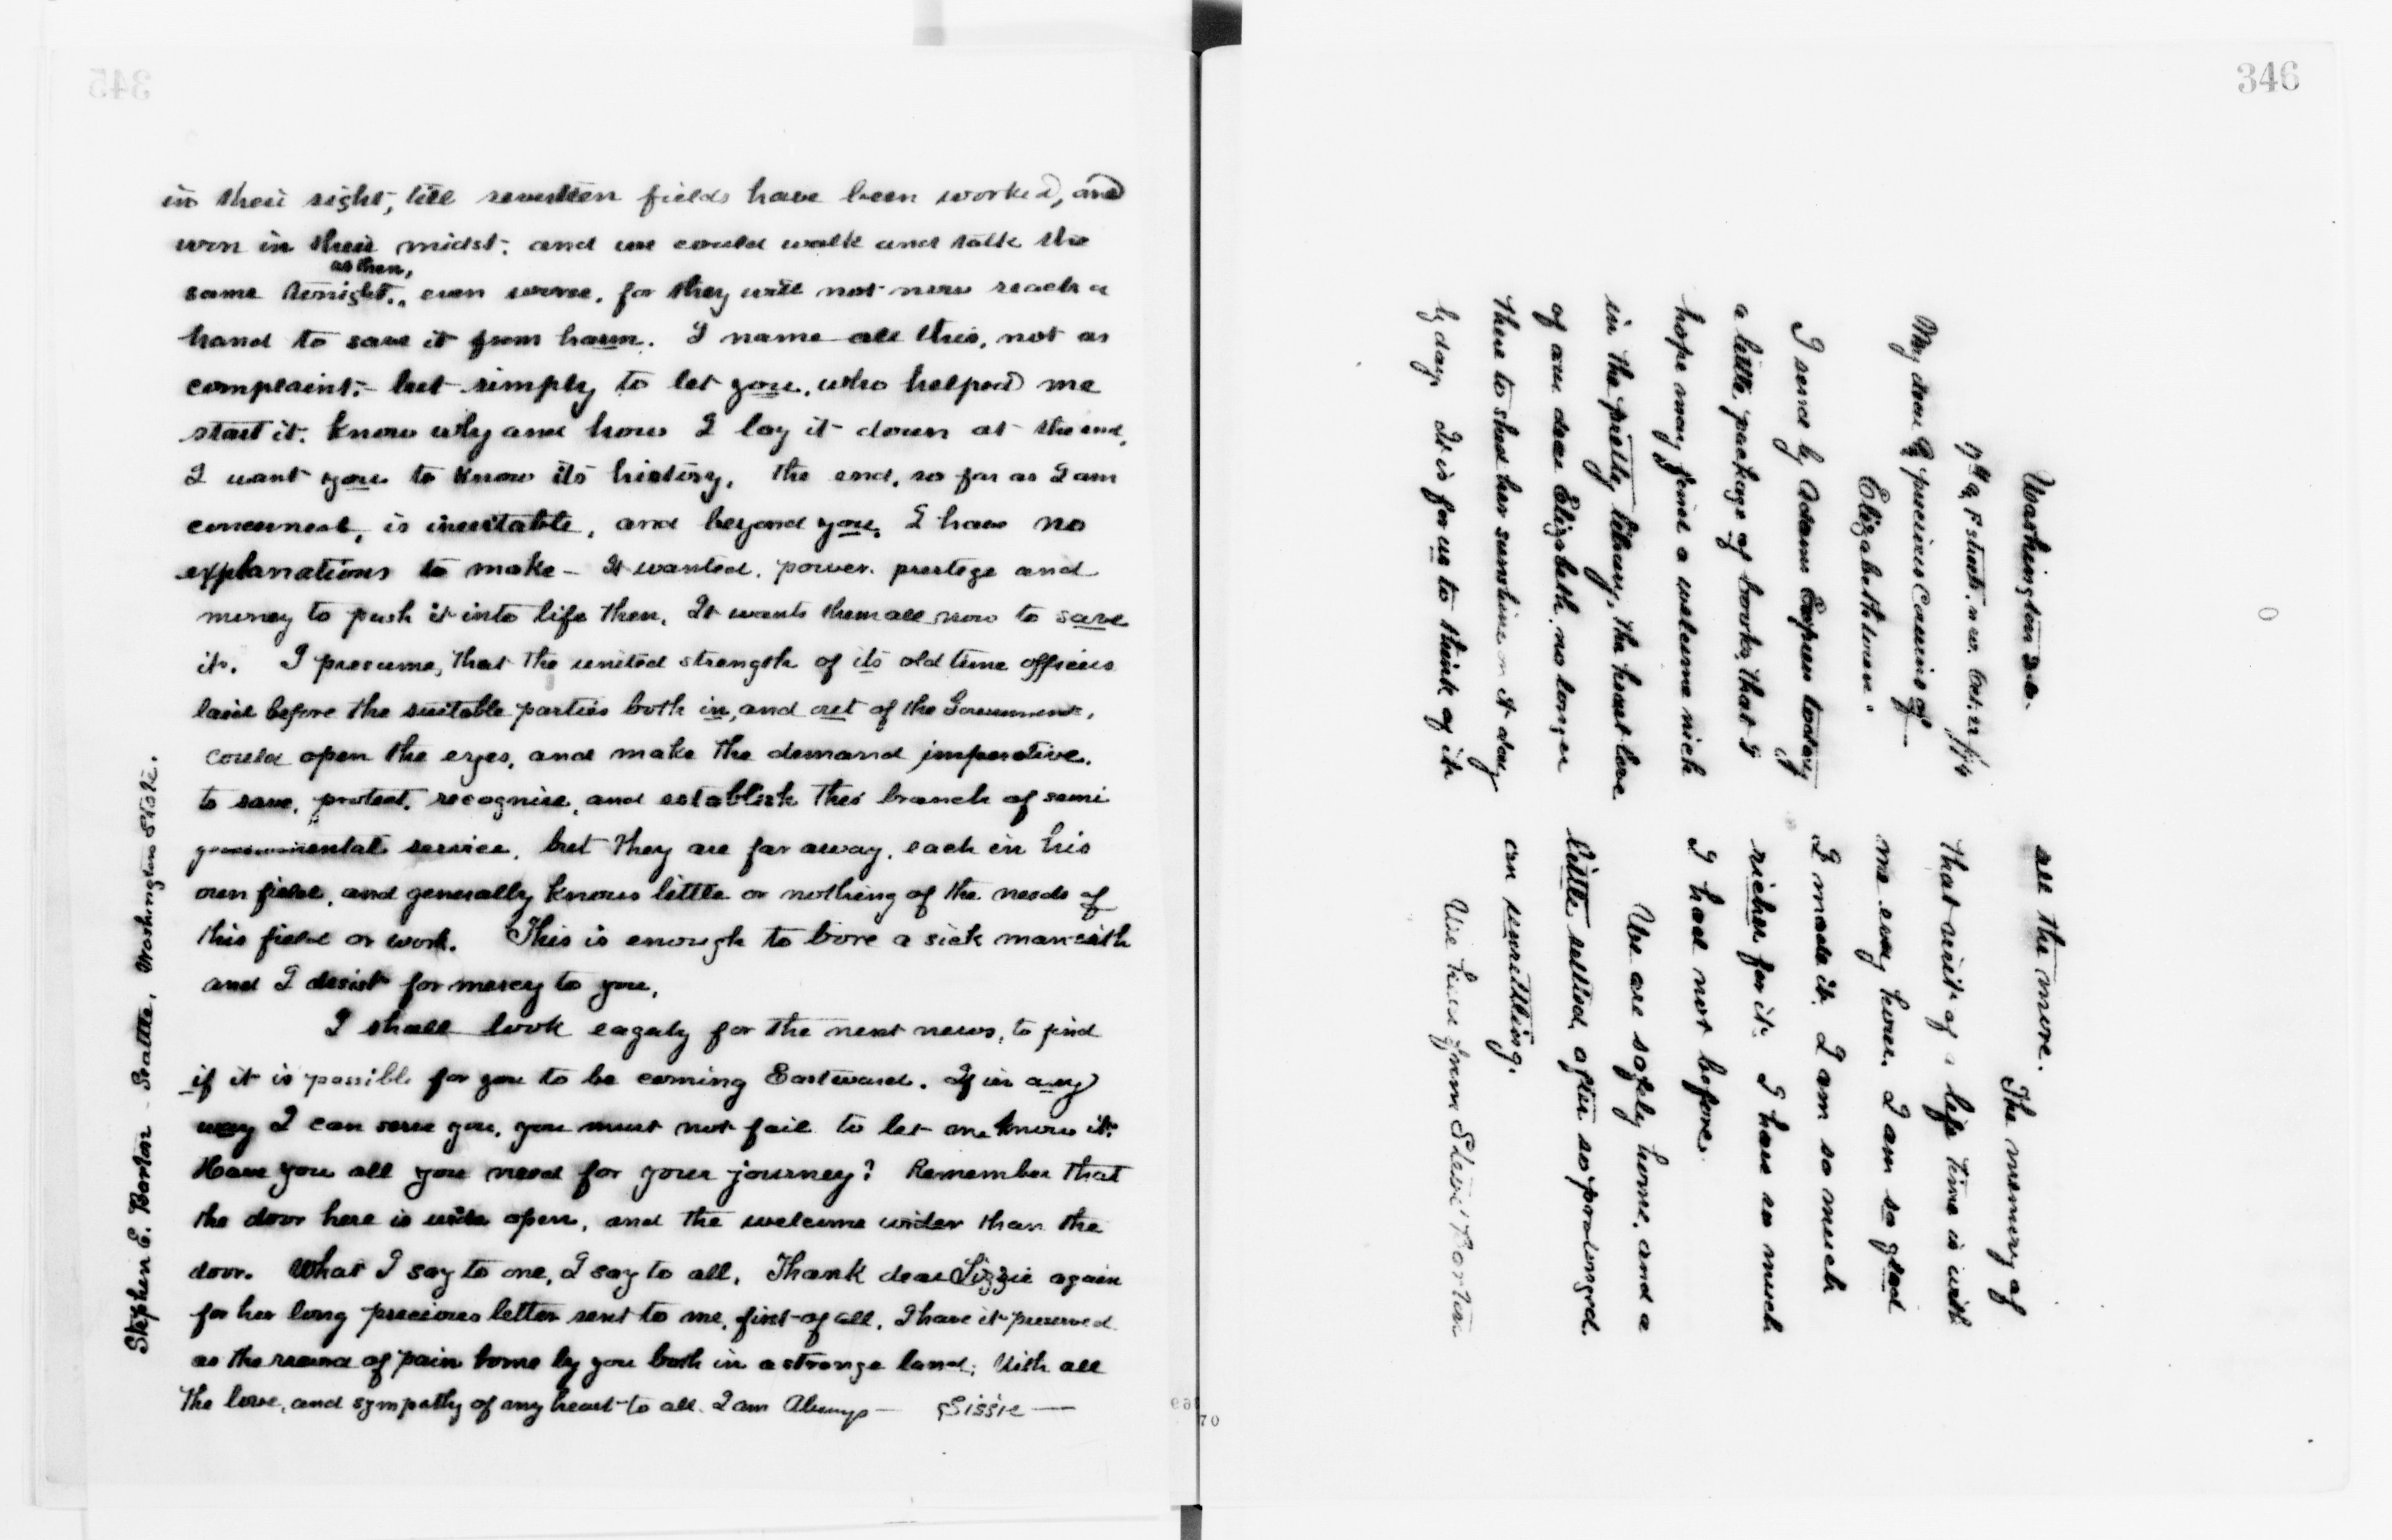 345
in their sight, till seventeen fields have been worked, and
won in their midst: and we could walk and talk the
as then,
same tonight, even worse, for they will not now reach a
hand to save it from harm. I name all this, not as
complaint; but simply to let you, who helped me
start it, know why and how I lay it down at the end.
I want you to know its history, the end, so far as I am
concerned, is inevitable, and beyond you, I have no
explanations to make – It wanted, power, prestege and
money to push it into life then, It wants them all now to save
it. I presume, that the united strength of its old time officers
laid before the suitable parties both in, and out of the Government,
could open the eyes, and make the demand imperative.
to save, protect, recognise, and establish this branch of semi
governmental service, but they are far away, each in his
own field, and generally knows little or nothing of the needs of
this field or work. This is enough to bore a sick man with
and I desist for mercy to you,
I shall look eagerly for the next news, to find
if it is possible for you to be coming Eastward. If in any
way I can serve you, you must not fail to let me know it.
Have you all you need for your journey? Remember that
the door here is wide open, and the welcome wider than the
door. What I say to one, I say to all. Thank dear Lizzie again
for her long precious letter sent to me, first of all, I have it preserved
as the record of pain borne by you both in a strange land; With all
the love, and sympathy of my heart to all. I am Always – Sissie —
Stephen E. Barton – Seattle, Washington State.
346
Washington D.C.
17th & F streets. n.w. Oct. 27
My dear & precious Cousins of
Elizabethtown.
I send by Adams Express today
a little package of books, that I
hope may find a welcome nich
in the pretty library, the heart love
of our dear Elizabeth, no longer
there to shed her sunshine on it day
by day It is for us to think of it
all the more. The memory of
that visit of a life time is with
me every hour. I am so glad
I made it. I am so much
richer for it. I have so much
I had not before.
We are safely home, and a
little settled, after so prolonged
an unsettling.
We hear from Steve Barton